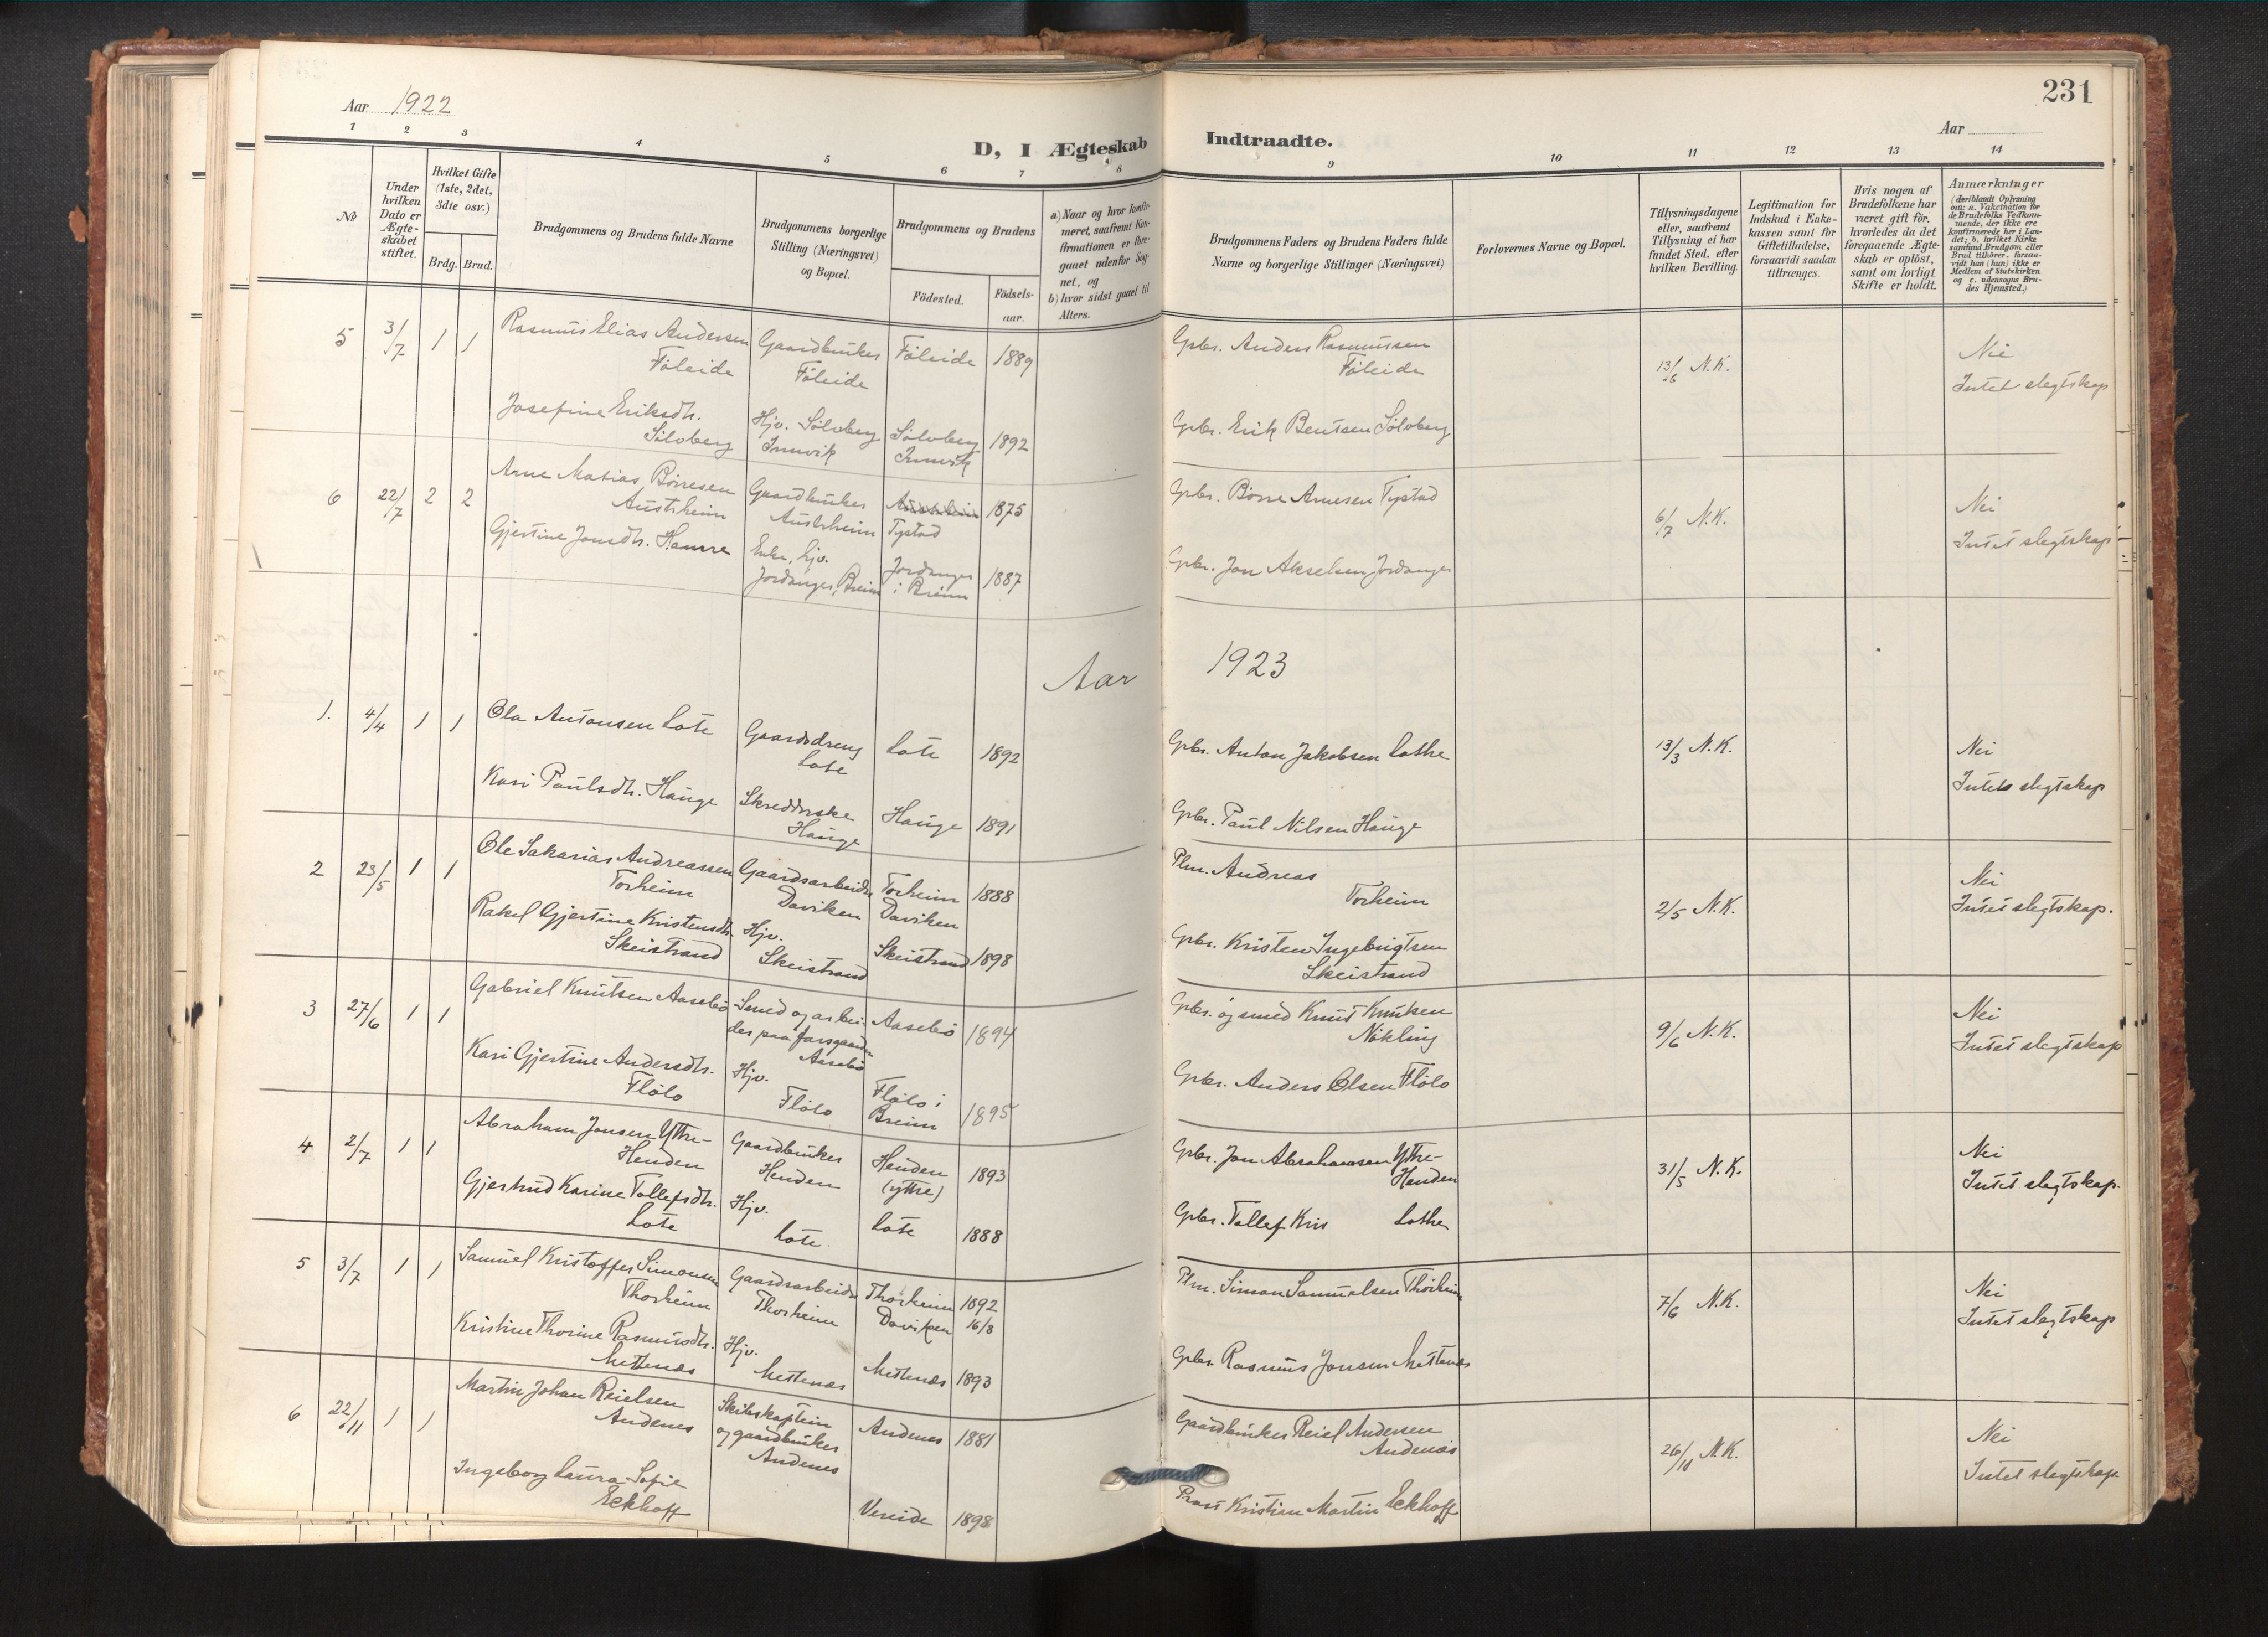 231
Aar 1922
Aar
D, I Ægteskab Indtraadte.
1 2 3 4 5 6 7 8 9 10 11 12 13 14
No
Under hvilken Dato er Ægteskabet stiftet.
Hvilket Gifte (1ste, 2det, 3die osv.)
Brdg. Brud.
Brudgommens og Brudens fulde Navne
Brudgommens borgerlige Stilling (Næringsvei) og Bopæl.
Brudgommens og Brudens
Födested.
Födselsaar.
a) Naar og hvor konfirmeret, saafremt Konfirmationen er foregaaet udenfor Sognet, og
b) hvor sidst gaaet til Alters.
Brudgommens Faders og Brudens Faders fulde Navne og borgerlige Stillinger (Næringsvei)
Forlovernes Navne og Bopæl.
Tillysningsdagene eller, saafremt Tillysning ei har fundet Sted, efter hvilken Bevilling.
Legitimation for Indskud i Enkekassen samt for Giftetilladelse, forsaavidt saadan tiltrænges.
Hvis nogen af Brudefolkene har været gift för, hvorledes da det foregaaende Ægteskab er oplöst, samt om lovligt Skifte er holdt.
Anmærkninger (deriblandt Oplysning om: a. Vakcination for de Brudefolks Vedkommende, der ikke ere konfirmerede her i Landet; b. hvilket Kirkesamfund Brudgom eller Brud tilhörer, forsaavidt han (hun) ikke er Medlem af Statskirken og c. udensogns Brudes Hjemsted.)
5 3/7 1 1 Rasmus Elias Andersen Föleide
Gaardbruker Föleide
Föleide 1889
Gpbr. Anders Rasmussen Föleide
13/6 N.K.
Nei
Intet slegtskap
Josefine Eriksdtr. Sölvberg
Hjv. Sölvberg Innvik
Sölvberg Innvik 1892
Gpbr. Erik Bentsen Sölvberg
6 22/7 2 2 Arne Matias Börresen Austrheim
Gaardbruker Austrheim
Tystad 1875
Gpbr. Börre Arnesen Tystad
6/7 N.K.
Nei
Intet slegtskap
Gjertine Jonsdtr.
Enke, hjv. Jordanger, Breim
Jordanger i Breim 1887
Gpbr. Jon Akselsen Jordanger
Aar 1923
1. 4/4 1 1 Ola Antonsen Lote
Gaardsdreng Lote
Lote 1892
Gpbr. Anton Jakobsen Lothe
13/3 N.K.
Nei
Intet slegtskap
Kari Paulsdtr. Hauge
Skredderske Hauge
Hauge 1891
Gpbr. Paul Nilsen Hauge
2 23/5 1 1 Ole Sakarias Andreassen Torheim
Gaardsarbeider Daviken
Torheim Daviken 1888
Plm. Andreas Torheim
2/5 N.K.
Nei
Intet slegtskap.
Rakel Gjertine Kristensdtr. Skeistrand
Hjv. Skeistrand
Skeistrand 1898
Gpbr. Kristen Ingebrigtsen Skeistrand
3 27/6 1 1 Gabriel Knutsen Aasebö
Smed og arbeider paa farsgaarden Aasebö
Aasebö 1894
Gpbr. og smed Knut Knutsen Nökling
9/6 N.K.
Nei
Intet slegtskap
Kari Gjertine Andersdtr. Flölo
Hjv. Flölo
Flölo i Breim 1895
Gpbr. Anders Olsen Flölo
4 2/7 1 1 Abraham Jonsen Ytre-Henden
Gaardbruker Henden
Henden (yttre) 1893
Gpbr. Jon Abrahamsen Ytre-Henden
31/5 N.K.
Nei
Intet slegtskap.
Gjertrud Karine Tollefsdtr. Lote
Hjv. Lote
Lote 1888
Gpbr. Tollef Kris Lothe
5 3/7 1 1 Samuel Kristoffer Simonsen Thorheim
Gaardsarbeider Thorheim
Thorheim Daviken 1892 16/8
Plm. Simon Samuelsen Thorheim
7/6 N.K.
Nei
Intet slegtskap
Kristine Thorine Rasmusdtr. Mettenæs
Hjv. Mettenæs
Mettenæs 1893
Gpbr. Rasmus Jonsen Mettenæs
6 22/11 1 1 Martin Johan Reielsen Andenes
Skibskaptein og gaardbruker Andenes
Andenes 1881
Gaardbruker Reiel Andersen Andenæs
26/10 N.K.
Nei
Intet slegtskap.
Ingeborg Laura Sofie Eckhoff
Vereide 1898
Prost Kristian Martin Eckhoff